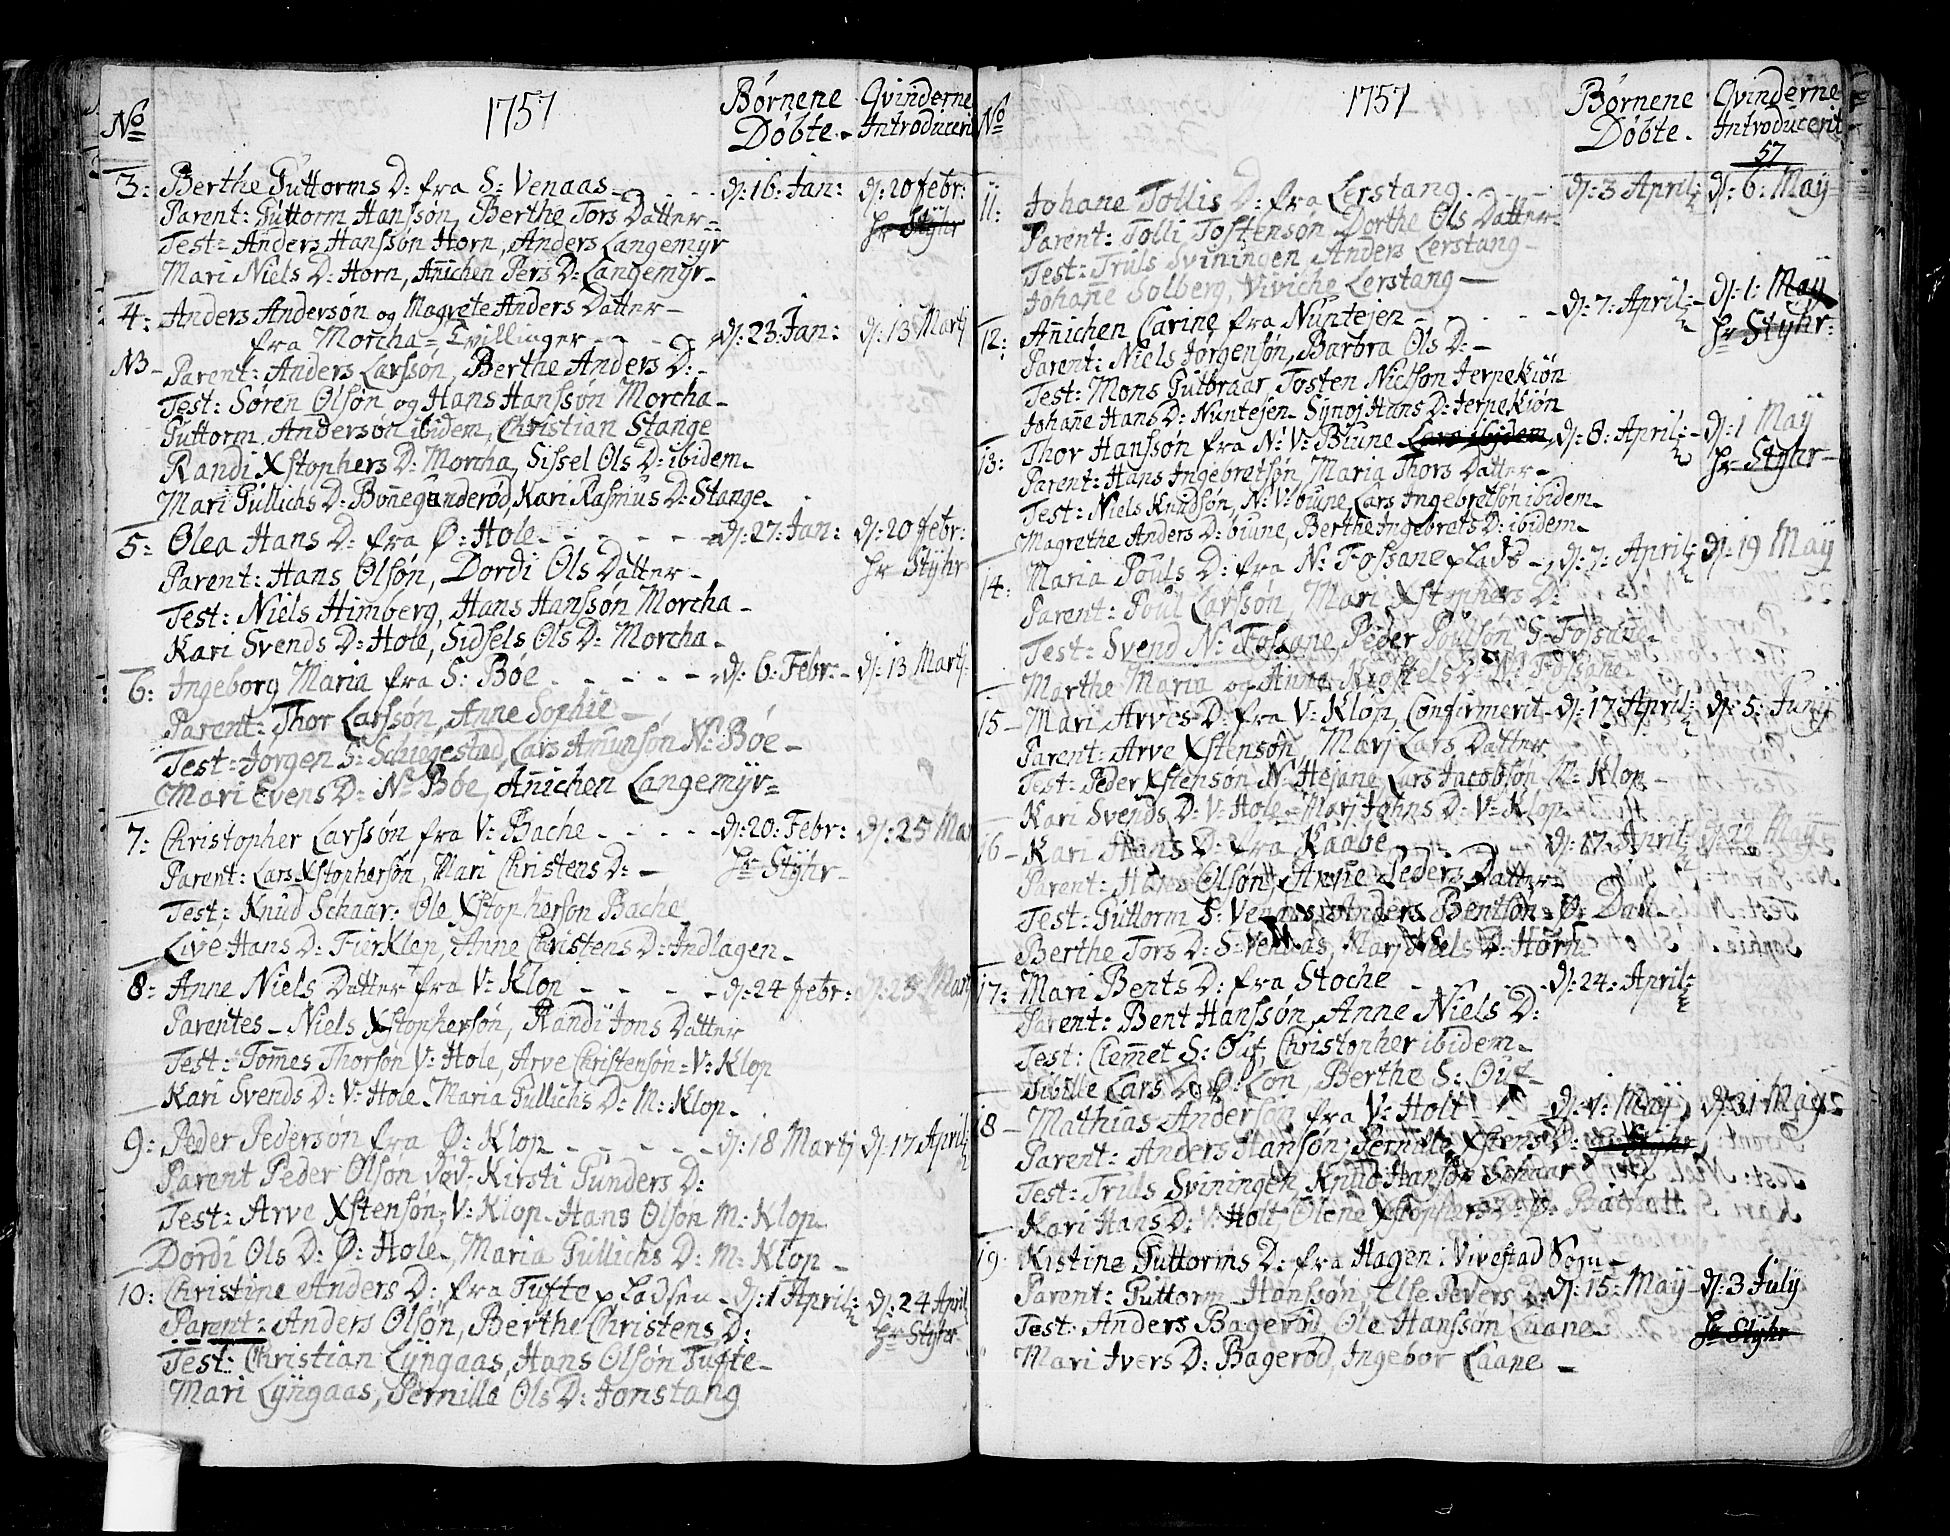 No 1757 Børnene Døbte. Qvinderne Introducerit
3: Berthe Guttorms D: fra S: Venaas d: 16. Jan: d: 20 febr:
Parent: Guttorm Hansføn, Berthe Tors Datter Hr Styhr
Test: Anders Hansføn Horn, Anders Langemyr
Mari Niels D: Horn, Anichen Pers D: Langemyr
4: Anders Andersøn og Magrete Anders Datter
fra Morcha = Tvillinger d: 23. Jan: d: 13 Martj
N3 Parent: Anders Larsføn, Berthe Anders D:
Test: Søren Olsøn og Hans Hansføn Morcha
Guttorm Andersøn ibidem, Christian Stange
Randi Xstophers D: Morcha, Sissel Ols D: ibidem
Mari Gullichs D: Bøneganderød, Kari Rasmus D: Stange
5: Olea Hans D: fra Ø: Hole d: 27. Jan: d: 20 febr:
Parent: Hans Olsøn, Dordi Ols Datter Hr Styhr
Test: Niels Himberg, Hans Hansføn Morcha
Kari Svends D: Hole, Sidsels Ols D: Morcha
6: Ingeborg Maria fra S: Bøe d: 6. Febr: d: 13 Martj
Parent: Thor Larsføn, Anne Sophie
Test: Jørgen S: Schiegestad, Lars Amunsøn N: Bøe
Mari Evens D: N: Bøe, Anichen Langemyr
7: Christopher Larsføn fra V: Bache d: 20. Febr: d: 25 Mar
Parent: Lars Xstophersøn, Mari Christens D: Hr Styhr
Test: Knud Schaar: Ole Xstophersøn Bache
Live Hans D: FierKlep, Anne Christens D: Indlagen
8: Anne Niels Datter fra V: Klop d: 24 febr: d: 25 Mar
Parentes Niels Xstophersøn, Randi Jons Datter
Test: Tomes Thorsøn V: Hole, Arve Christensøn V: Klop
Kari Svends D: V: Hole, Maria Gullichs D: M: Klop
9: Peder Pedersøn fra Ø: Klop d: 18 Martj d: 17 April:
Parent Peder Olsøn Kirsti Gunders D:
Test: Arve Xstensøn V: Klop Hans Olsøn M: Klop
Dordi Ols D: Ø: Hole, Maria Gullichs D: M: Klop
10: Christine Anders D: fra Tufte pladsen d: 1 April: d: 24 April
Parent: Anders Olsøn, Berthe Christens D: Hr Styhr
Test: Christian Lyngaas, Hans Olsøn Tufte
Mari Lyngaas, Pernille Ols D: Jonstang
No 1757 Børnene Døbte. Qvinderne Introducerit
57
11: Johane Tollis D: fra Lerstang d: 3 April: d: 6: May
Parent: Tolli Tostensøn Dorthe Ols Datter
Test: Truls Sviningen Anders Lerstang
Johane Solberg, Viviche Lerstang
12: Anichen Carine fra Nuntejen d: 7. April: d: 1: May
Parent: Niels Jørgensøn, Barbra Ols D: Hr Styhr
Test: Mons Gutbraar Tosten Nielsøn JerpeKiøn
Johane Hans D: Nuntejen Synøj Hans D: JerpeKiøn
13: Thor Hansføn fra N: V: Biune Lars ibidem d: 8: April: d: 1 May
Parent: Hans Ingebretsøn, Maria Thors Datter Hr Styhr
Test: Niels Knudsøn, N: V: biune, Lars Ingebretsøn ibidem
Magrethe Anders D: biune, Berthe Ingebrets D: ibidem
14: Maria Pouls D: fra N: Fossane plads d: 7: April: d: 19 May
Parent: Poul Larsføn, Mari Xstophers D:
Test: Svend N: Fossane, Peder Poulsøn S: Fossane
Marthe Maria og Anne D: N: Fossane
15 Mari Arves D: fra V: Klop, Confirmerit d: 17 April: d: 5: Junij
Parent: Arve Xstensøn, Marj Lars Datter
Test: Peder Xstensøn N: Hejane Lars Jacobsøn M: Klop
Kari Svends D: V: Hole Marj Johns D: V: Klop
16 Kari Hans D: fra Kaabe d: 17. April: d: 22 May
Parent: Hans Olsøn, Anne Peders Datter
Test: Guttorm S: Venaas Anders Bentsøn Ø: Dahl
Berthe Tors D: S: Venaas, Marj Niels D: Horn
17: Mari Bents D: fra Stoche d: 24. April:
Parent: Bent Hansføn, Anne Niels D:
Test: Clemet S: Ouf, Christopher ibidem
Sibille Lars D: Ø: Løn, Berthe S: Ouf
18 Mathias Andersøn fra V: Holt d: 1: May d: 31 May
Parent: Anders Hansføn, Pernille Xstens D: Hr Styhr
Test: Truls Sviningen Knud Hansføn Schaar
Kari Hans D: V: Holt, Olene Xstophers D: Ø:
19. Kistine Guttorms D: fra Hagen: Vivestad Sogn
Parent: Guttorm Hansføn Else Pevers D: d: 15: May d: 3 July
Test: Anders Bagerød Ole Hansføn Laane Hr Styhr
Mari Ivers D: Bagerød, Ingebor Laane